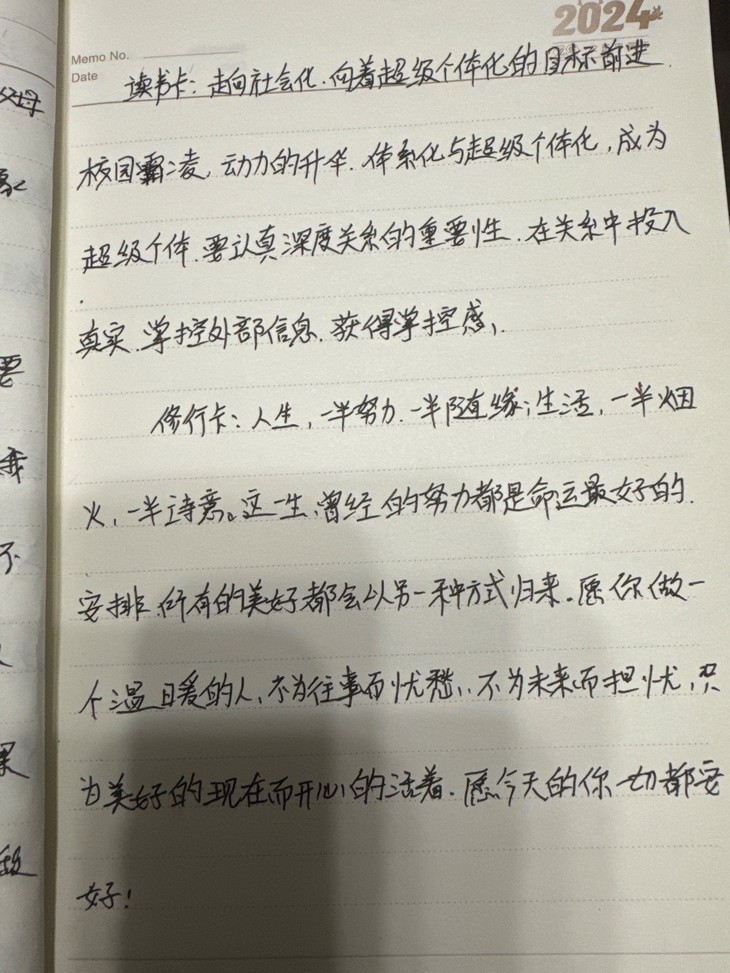 2024
Memo No.
Date
读书卡：走向社会化.向着超级个体化的目标前进.
校园霸凌，动力的升华.体系化与超级个体化，成为
超级个体.要认真深度关系的重要性.在关系中投入
真实.掌控外部信息.获得掌控感，.
修行卡：人生，一半努力.一半随缘；生活，一半烟
火，一半诗意。这一生，曾经的努力都是命运最好的.
安排.所有的美好都会以另一种方式归来.愿你做一
个温暖的人，不为往事而忧愁，.不为未来而担忧，只
为美好的现在而开心的活着.愿今天的你一切都安
好！
父母
要
我
不
果